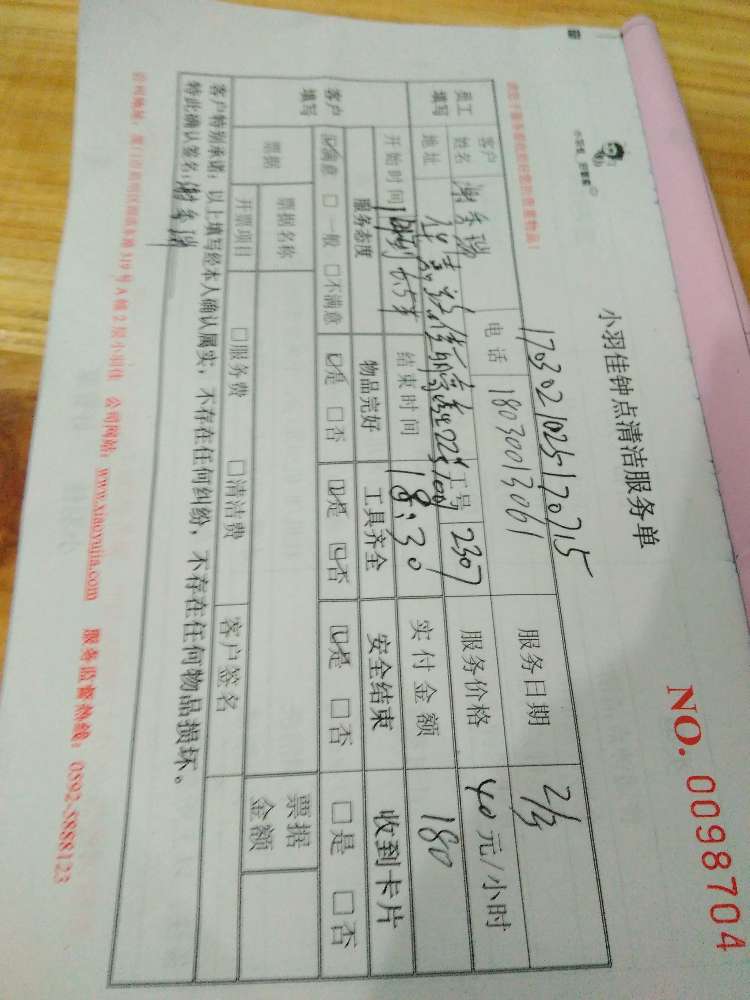 小羽佳钟点清洁服务单
NO. 0098704
小羽佳，好管家
17030210251720715
员工填写 客户姓名 谢秀瑞 电话 18030013061 服务日期 2/3
地址 工号 2307 服务价格 40 元/小时
开始时间 结束时间 18:30 实付金额 180
客户填写 服务态度 物品完好 工具齐全 安全结束 收到卡片
☑满意 □一般 □不满意 ☑是 □否 ☑是 □否 ☑是 □否 □是 □否
票据 票据名称 票据金额
开票项目 □服务费 □清洁费 客户签名
客户特别承诺：以上填写经本人确认属实，不存在任何纠纷，不存在任何物品损坏。
特此确认签名：谢秀瑞
公司网站：www.xiaoyujia.com 服务监督热线：0592-5888123